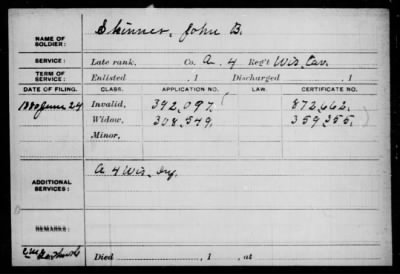 NAME OF SOLDIER: Skinner, John B.
SERVICE: Late rank, Co. A. 4 Reg't Wis. Cav.
TERM OF SERVICE: Enlisted , 1 Discharged , 1
DATE OF FILING. CLASS. APPLICATION NO. LAW. CERTIFICATE NO.
1880 June 24 Invalid, 392,097 872,662.
Widow, 308,549. 359,355.
Minor,
ADDITIONAL SERVICES: A 4 Wis. Inf.
REMARKS:
Died , 1 , at